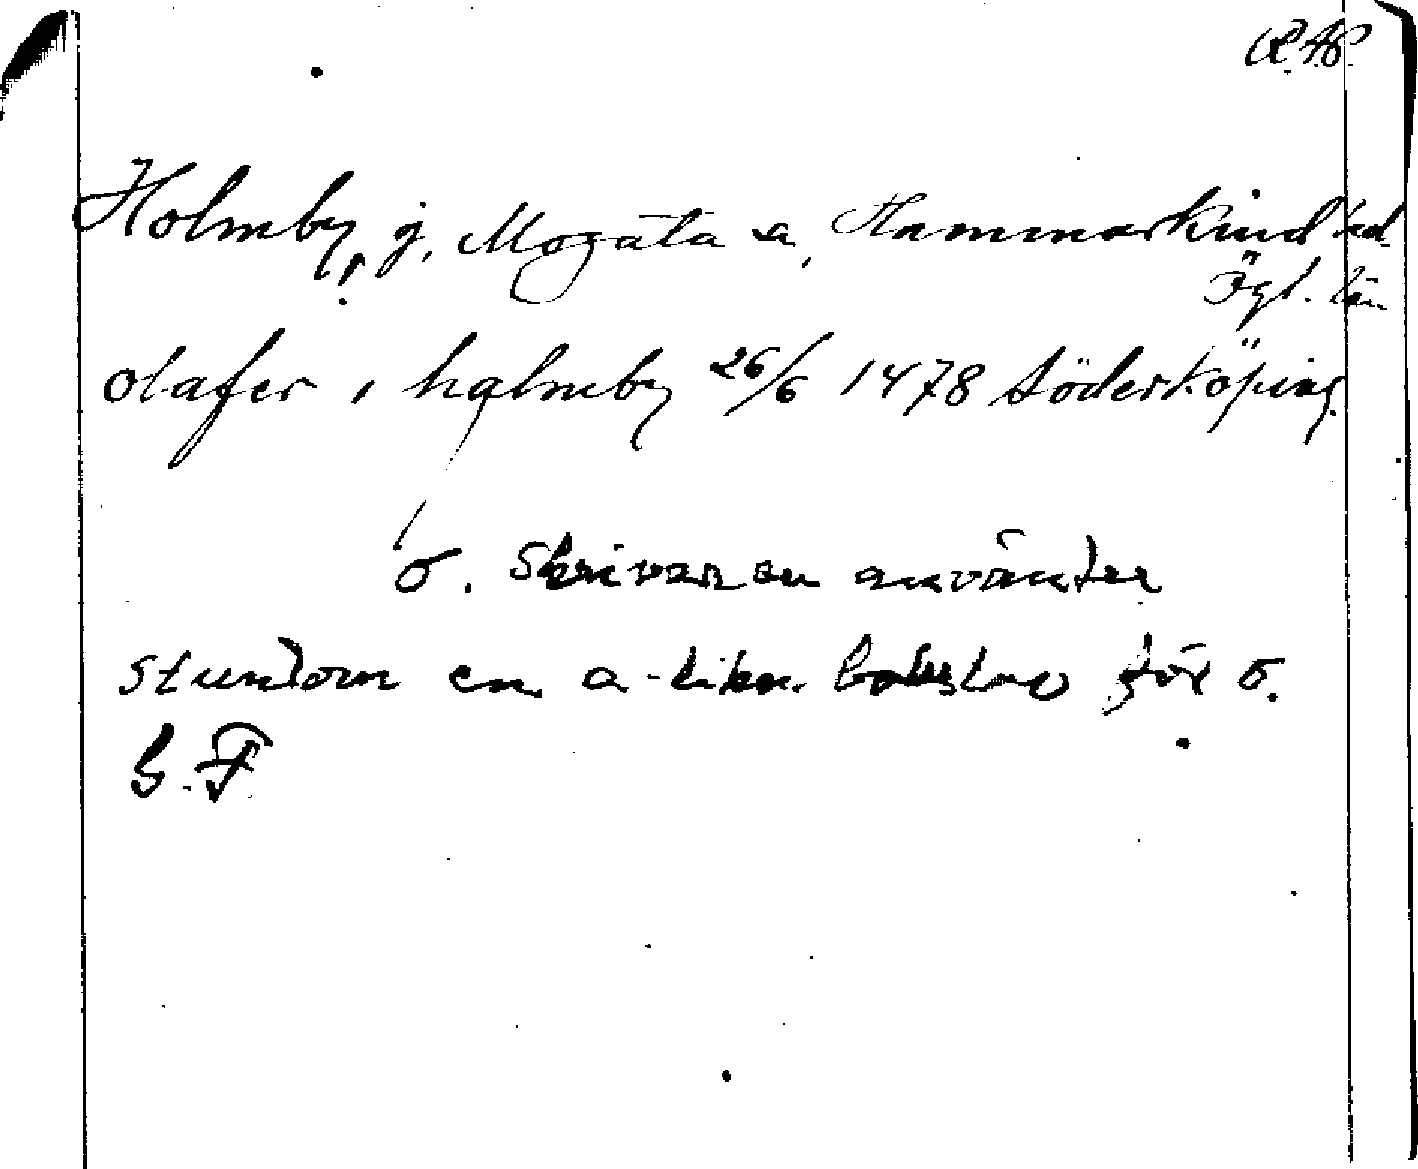 R.A.8.
Holmby, g, Mogata sn, Hammarkind hd
Ögl. län
olafer i halmby 26/6 1478 Söderköping
o. Skrivaren använder
stundom en a-likn. bokstav för o.
G.F